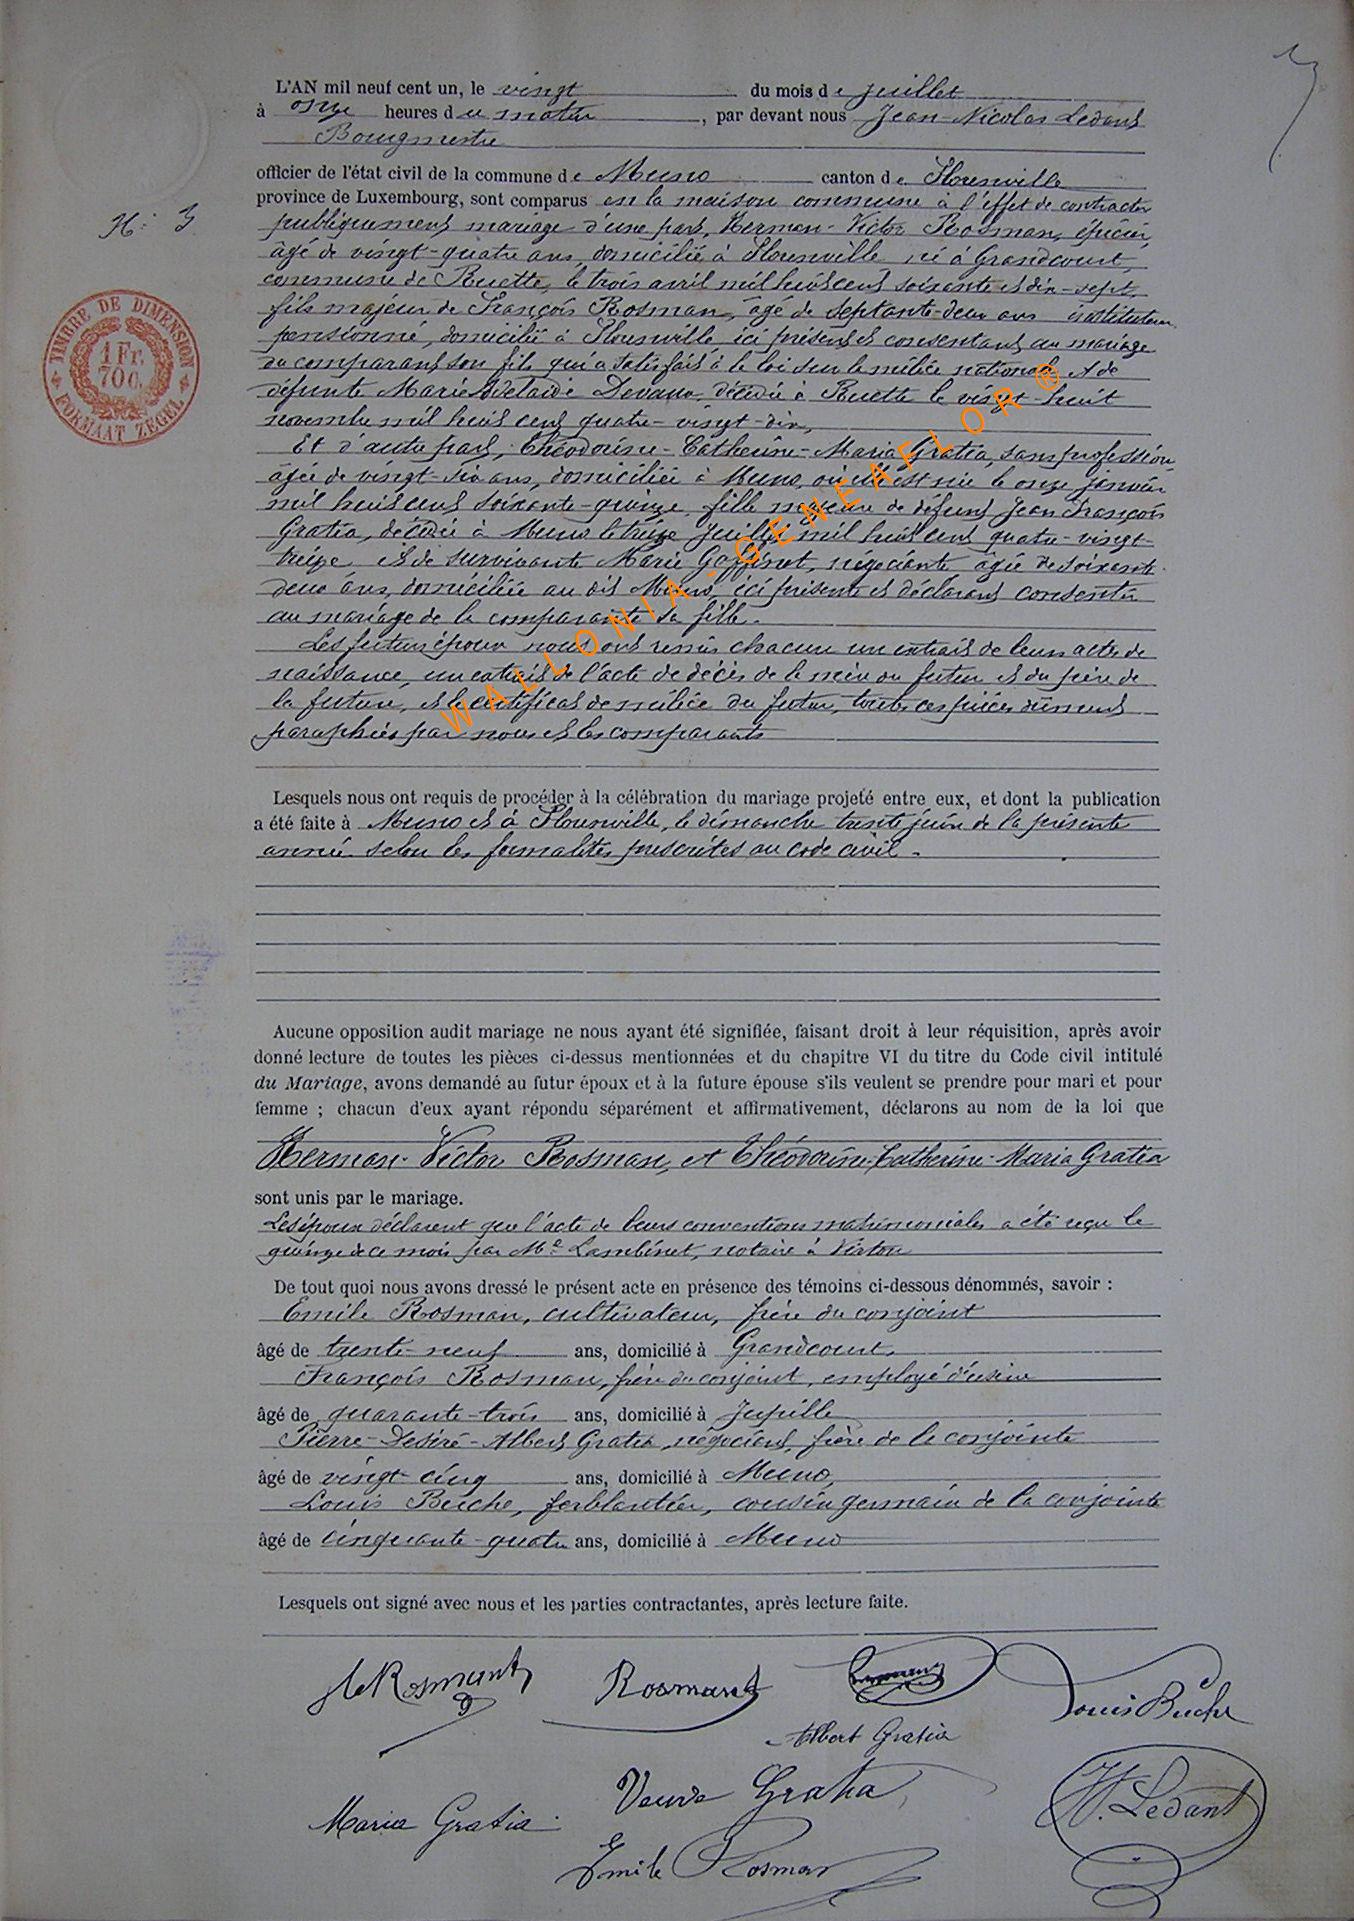 L'AN mil neuf cent un, le vingt du mois de juillet
à onze heures du matin, par devant nous Jean-Nicolas Ledant
Bourgmestre
officier de l'état civil de la commune de Muno canton de Florenville
province de Luxembourg, sont comparus en la maison commune à l'effet de contracter
N: 3
publiquement mariage d'une part, Herman-Victor Rosman, épicier,
âgé de vingt-quatre ans, domicilié à Florenville né à Grandcourt,
commune de Ruette, le trois avril mil huit cent soixante et dix-sept,
fils majeur de François Rosman, âgé de septante-deux ans instituteur
TIMBRE DE DIMENSION
1 Fr.
70 C.
FORMAAT ZEGEL
pensionné, domicilié à Florenville ici présent et consentant au mariage
du comparant son fils qui a satisfait à la loi sur la milice nationale et de
défunte Marie Adelaïde Devaux, décédée à Ruette le vingt-huit
novembre mil huit cent quatre-vingt-dix,
Et d'autre part, Théodorine-Catherine-Maria Gratia, sans profession,
âgée de vingt-six ans, domiciliée à Muno, où elle est née le onze janvier
mil huit cent soixante-quinze, fille majeure de défunt Jean François
Gratia, décédé à Muno le treize juillet mil huit cent quatre-vingt-
treize, et de survivante Marie Goffinet, négociante âgée de soixante-
deux ans, domiciliée au dit Muno, ici présente et déclarant consentir
au mariage de la comparante sa fille.
Les futurs époux nous ont remis chacun un extrait de leurs actes de
naissance, un extrait de l'acte de décès de la mère du futur et du père de
la future, et le certificat de milice du futur, toutes ces pièces dûment
paraphées par nous et les comparants
WALLONIA-GENEAFLOR®
Lesquels nous ont requis de procéder à la célébration du mariage projeté entre eux, et dont la publication
a été faite à Muno et à Florenville, le dimanche trente juin de la présente
année selon les formalités prescrites au code civil.
Aucune opposition audit mariage ne nous ayant été signifiée, faisant droit à leur réquisition, après avoir
donné lecture de toutes les pièces ci-dessus mentionnées et du chapitre VI du titre du Code civil intitulé
du Mariage, avons demandé au futur époux et à la future épouse s'ils veulent se prendre pour mari et pour
femme ; chacun d'eux ayant répondu séparément et affirmativement, déclarons au nom de la loi que
Herman-Victor Rosman, et Théodorine-Catherine-Maria Gratia
sont unis par le mariage.
Les époux déclarent que l'acte de leurs conventions matrimoniales a été reçu le
quinze de ce mois par Me Lambinet, notaire à Virton
De tout quoi nous avons dressé le présent acte en présence des témoins ci-dessous dénommés, savoir :
Emile Rosman, cultivateur, frère du conjoint
âgé de trente-neuf ans, domicilié à Grandcourt,
François Rosman, frère du conjoint, employé d'usine
âgé de quarante-trois ans, domicilié à Jupille
Pierre-Desiré-Albert Gratia, négociant, frère de la conjointe
âgé de vingt-cinq ans, domicilié à Muno,
Louis Buche, ferblantier, cousin germain de la conjointe
âgé de cinquante-quatre ans, domicilié à Muno
Lesquels ont signé avec nous et les parties contractantes, après lecture faite.
Rosman
Rosman
Louis Buche
Albert Gratia
Veuve Gratia
Maria Gratia
N. Ledant
Emile Rosman